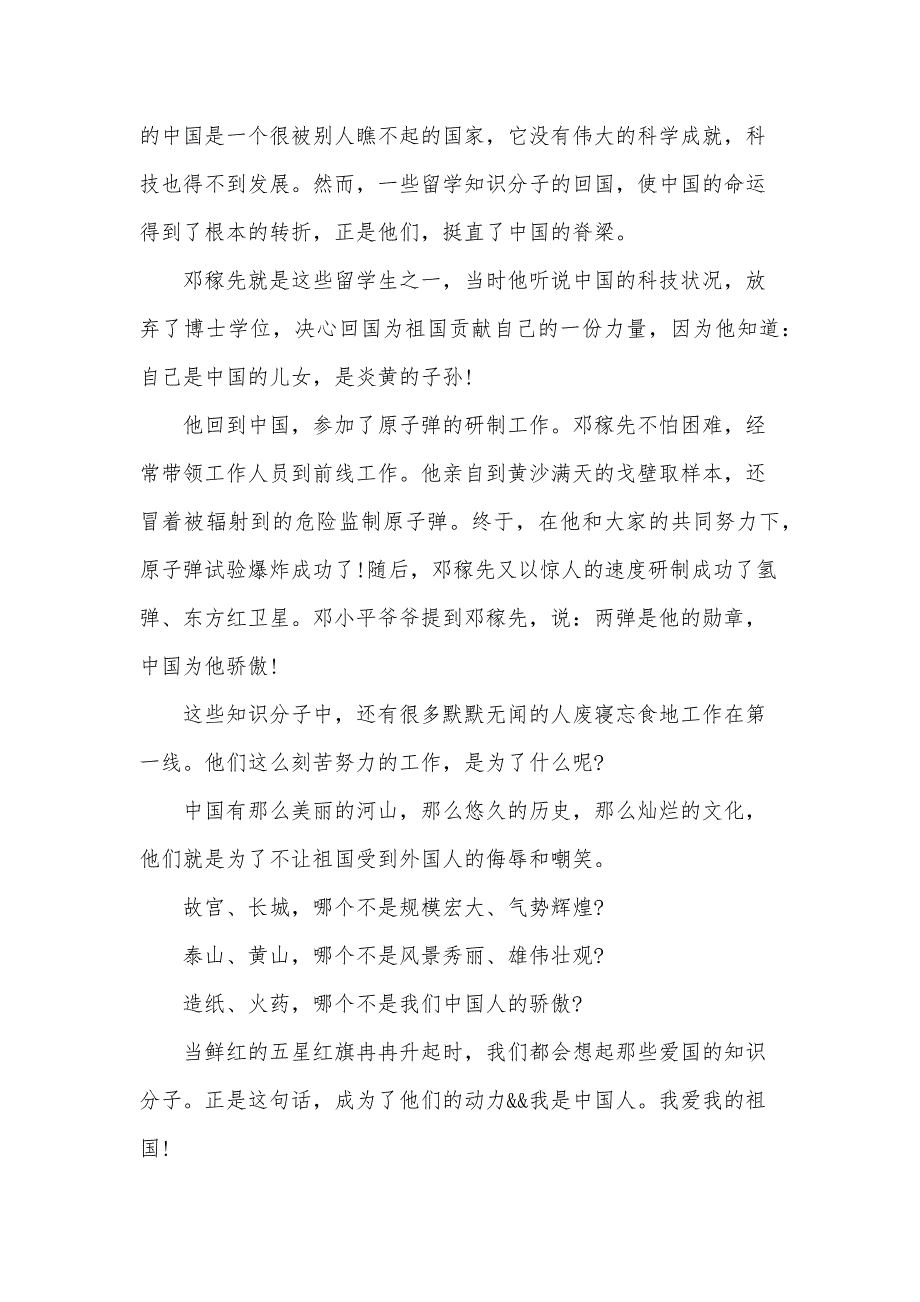 的中国是一个很被别人瞧不起的国家，它没有伟大的科学成就，科
技也得不到发展。然而，一些留学知识分子的回国，使中国的命运
得到了根本的转折，正是他们，挺直了中国的脊梁。
邓稼先就是这些留学生之一，当时他听说中国的科技状况，放
弃了博士学位，决心回国为祖国贡献自己的一份力量，因为他知道：
自己是中国的儿女，是炎黄的子孙!
他回到中国，参加了原子弹的研制工作。邓稼先不怕困难，经
常带领工作人员到前线工作。他亲自到黄沙满天的戈壁取样本，还
冒着被辐射到的危险监制原子弹。终于，在他和大家的共同努力下，
原子弹试验爆炸成功了!随后，邓稼先又以惊人的速度研制成功了氢
弹、东方红卫星。邓小平爷爷提到邓稼先，说：两弹是他的勋章，
中国为他骄傲!
这些知识分子中，还有很多默默无闻的人废寝忘食地工作在第
一线。他们这么刻苦努力的工作，是为了什么呢?
中国有那么美丽的河山，那么悠久的历史，那么灿烂的文化，
他们就是为了不让祖国受到外国人的侮辱和嘲笑。
故宫、长城，哪个不是规模宏大、气势辉煌?
泰山、黄山，哪个不是风景秀丽、雄伟壮观?
造纸、火药，哪个不是我们中国人的骄傲?
当鲜红的五星红旗冉冉升起时，我们都会想起那些爱国的知识
分子。正是这句话，成为了他们的动力&&我是中国人。我爱我的祖
国!